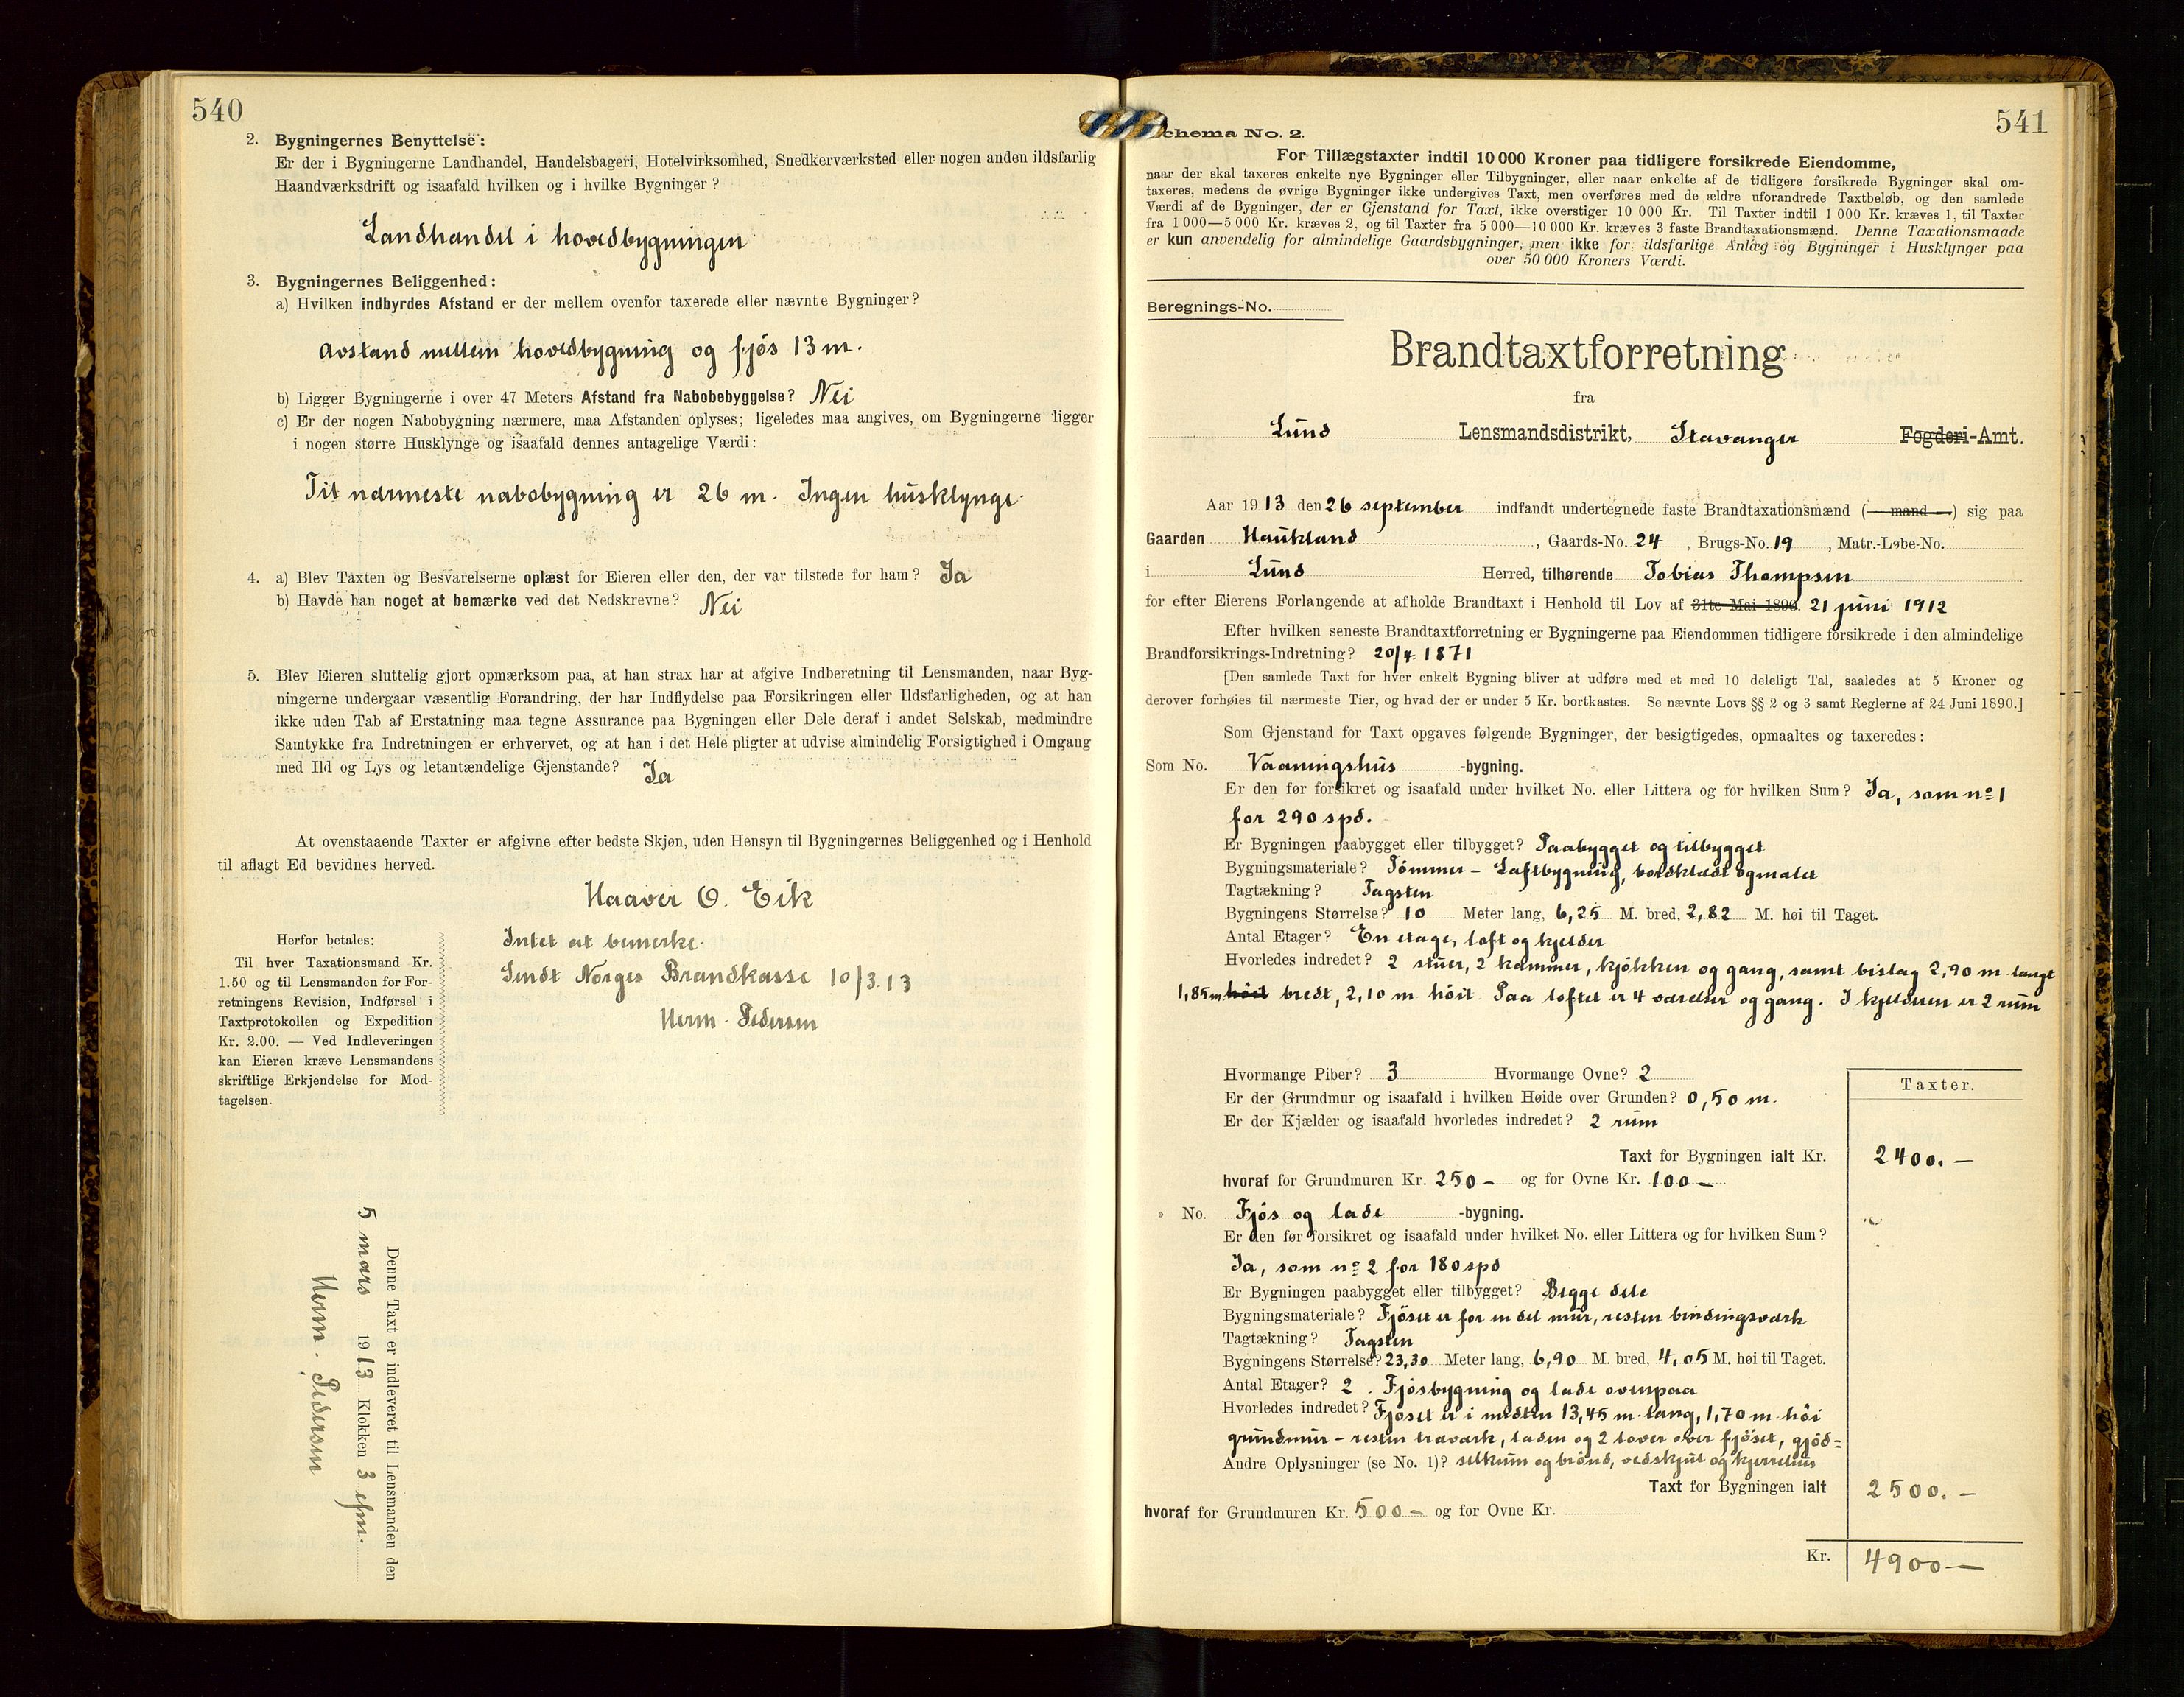 540
2. Bygningernes Benyttelse:
Er der i Bygningerne Landhandel, Handelsbageri, Hotelvirksomhed, Snedkerværksted eller nogen anden ildsfarlig
Haandværksdrift og isaafald hvilken og i hvilke Bygninger?
Landhandel i hovedbygningen
3. Bygningernes Beliggenhed:
a) Hvilken indbyrdes Afstand er der mellem ovenfor taxerede eller nævnte Bygninger?
Avstand mellem hovedbygning og fjös 13 m.
b) Ligger Bygningerne i over 47 Meters Afstand fra Nabobebyggelse? Nei
c) Er der nogen Nabobygning nærmere, maa Afstanden oplyses; ligeledes maa angives, om Bygningerne ligger
i nogen større Husklynge og isaafald dennes antagelige Værdi:
Til nærmeste nabobygning er 26 m. Ingen husklynge.
4. a) Blev Taxten og Besvarelserne oplæst for Eieren eller den, der var tilstede for ham? Ja
b) Havde han noget at bemærke ved det Nedskrevne? Nei
5. Blev Eieren sluttelig gjort opmærksom paa, at han strax har at afgive Indberetning til Lensmanden, naar Byg-
ningerne undergaar væsentlig Forandring, der har Indflydelse paa Forsikringen eller Ildsfarligheden, og at han
ikke uden Tab af Erstatning maa tegne Assurance paa Bygningen eller Dele deraf i andet Selskab, medmindre
Samtykke fra Indretningen er erhvervet, og at han i det Hele pligter at udvise almindelig Forsigtighed i Omgang
med Ild og Lys og letantændelige Gjenstande? Ja
At ovenstaaende Taxter er afgivne efter bedste Skjøn, uden Hensyn til Bygningernes Beliggenhed og i Henhold
til aflagt Ed bevidnes herved.
Haaver O. Eik
Herfor betales:
Til hver Taxationsmand Kr.
1.50 og til Lensmanden for For-
retningens Revision, Indførsel i
Taxtprotokollen og Expedition
Kr. 2.00. — Ved Indleveringen
kan Eieren kræve Lensmandens
skriftlige Erkjendelse for Mod-
tagelsen.
Intet at bemerke.
Sendt Norges Brandkasse 10/3.13
Herm. Pedersen
Denne Taxt er indleveret til Lensmanden den
5 mars 1913 Klokken 3 efm.
Herm. Pedersen
541
chema No. 2.
For Tillægstaxter indtil 10 000 Kroner paa tidligere forsikrede Eiendomme,
naar der skal taxeres enkelte nye Bygninger eller Tilbygninger, eller naar enkelte af de tidligere forsikrede Bygninger skal om-
taxeres, medens de øvrige Bygninger ikke undergives Taxt, men overføres med de ældre uforandrede Taxtbeløb, og den samlede
Værdi af de Bygninger, der er Gjenstand for Taxt, ikke overstiger 10 000 Kr. Til Taxter indtil 1 000 Kr. kræves 1, til Taxter
fra 1 000—5 000 Kr. kræves 2, og til Taxter fra 5 000—10 000 Kr. kræves 3 faste Brandtaxationsmænd. Denne Taxationsmaade
er kun anvendelig for almindelige Gaardsbygninger, men ikke for ildsfarlige Anlæg og Bygninger i Husklynger paa
over 50 000 Kroners Værdi.
Beregnings-No.
Brandtaxtforretning
fra
Lund Lensmandsdistrikt, Stavanger Fogderi-Amt.
Aar 1913 den 26 september indfandt undertegnede faste Brandtaxationsmænd (— mand —) sig paa
Gaarden Haukland, Gaards-No. 24, Brugs-No. 19, Matr.-Løbe-No.
i Lund Herred, tilhørende Tobias Thompsen
for efter Eierens Forlangende at afholde Brandtaxt i Henhold til Lov af 31te Mai 1890. 21 juni 1912
Efter hvilken seneste Brandtaxtforretning er Bygningerne paa Eiendommen tidligere forsikrede i den almindelige
Brandforsikrings-Indretning? 20/4 1871
[Den samlede Taxt for hver enkelt Bygning bliver at udføre med et med 10 deleligt Tal, saaledes at 5 Kroner og
derover forhøies til nærmeste Tier, og hvad der er under 5 Kr. bortkastes. Se nævnte Lovs §§ 2 og 3 samt Reglerne af 24 Juni 1890.]
Som Gjenstand for Taxt opgaves følgende Bygninger, der besigtigedes, opmaaltes og taxeredes:
Som No. Vaaningshus -bygning.
Er den før forsikret og isaafald under hvilket No. eller Littera og for hvilken Sum? Ja, som no 1
for 290 spd.
Er Bygningen paabygget eller tilbygget? Paabygget og tilbygget
Bygningsmateriale? Tömmer – Laftbygning, bordklædt og malet
Tagtækning? Tagsten
Bygningens Størrelse? 10 Meter lang, 6,25 M. bred, 2,82 M. høi til Taget.
Antal Etager? En etage, loft og kjelder
Hvorledes indredet? 2 stuer, 2 kammer, kjökken og gang, samt bislag 2,90 m langt
1,85 m höit bredt, 2,10 m höit. Paa loftet er 4 værelser og gang. I kjelderen er 2 rum
Hvormange Piber? 3 Hvormange Ovne? 2
Er der Grundmur og isaafald i hvilken Høide over Grunden? 0,50 m.
Er der Kjælder og isaafald hvorledes indredet? 2 rum
Taxter.
Taxt for Bygningen ialt Kr. 2400.—
hvoraf for Grundmuren Kr. 250 – og for Ovne Kr. 100 —
» No. Fjös og lade -bygning.
Er den før forsikret og isaafald under hvilket No. eller Littera og for hvilken Sum?
Ja, som no 2 for 180 spd
Er Bygningen paabygget eller tilbygget? Begge dele
Bygningsmateriale? Fjöset er for en del mur, resten bindingsværk
Tagtækning? Tagsten
Bygningens Størrelse? 23,30 Meter lang, 6,90 M. bred, 4,05 M. høi til Taget.
Antal Etager? 2. Fjösbygning og lade ovenpaa
Hvorledes indredet? Fjöset er i midten 13,45 m lang, 1,70 m höi
grundmur – resten træværk, laden og 2 lover over fjöset, gjöd=
Andre Oplysninger (se No. 1)? selkum og brönd, vedskjul og kjerrehus
Taxt for Bygningen ialt 2500.—
hvoraf for Grundmuren Kr. 500 – og for Ovne Kr.
Kr. 4900—